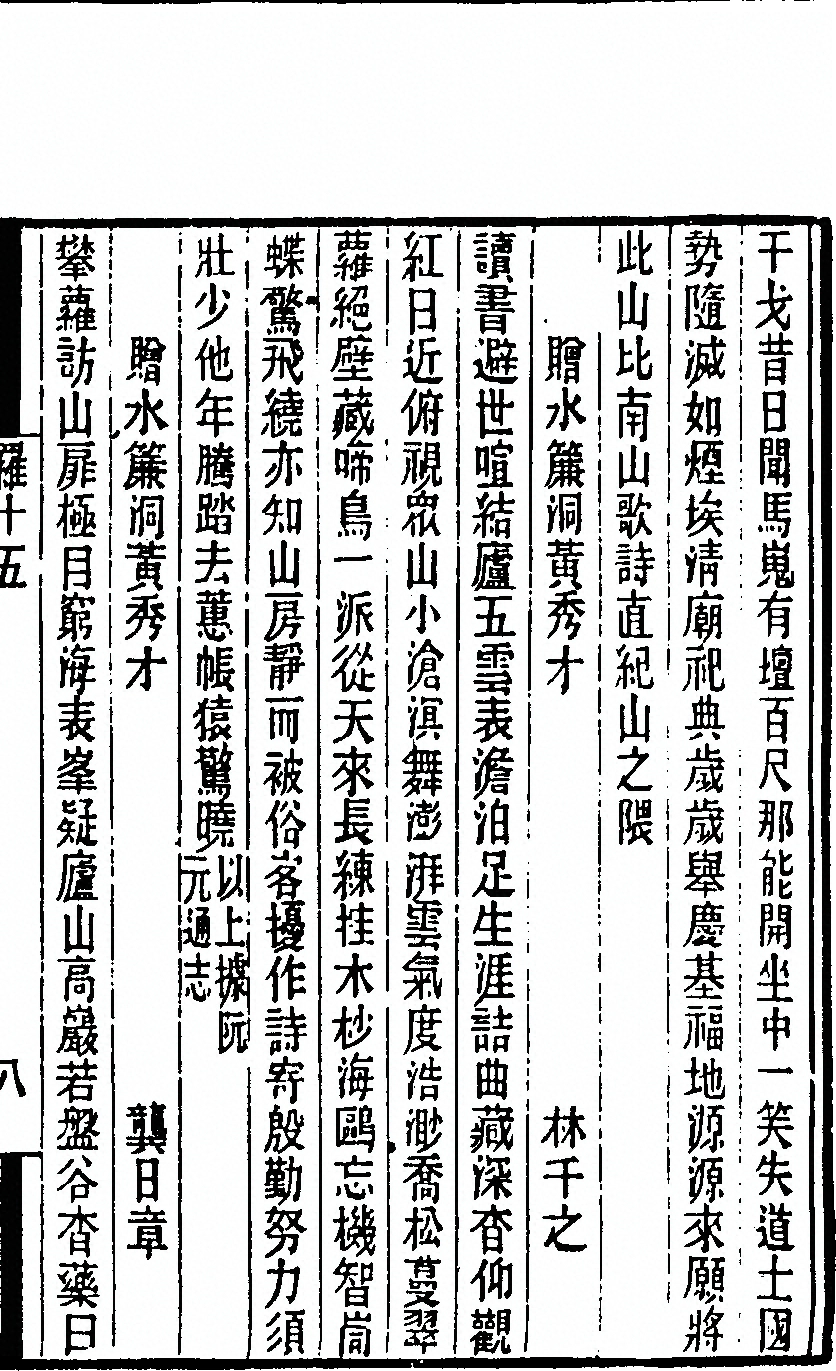 干戈昔日聞馬嵬有壇百尺那能開坐中一笑失道士國
勢隨滅如煙埃清廟祀典歲歲舉慶基福地源源來願將
此山比南山歌詩直紀山之隈
贈水簾洞黃秀才 林千之
讀書避世喧結廬五雲表澹泊足生涯詰曲藏深杳仰觀
紅日近俯視眾山小滄溟舞澎湃雲氣度浩渺喬松蔓翠
蘿絕壁藏啼鳥一派從天來長練挂木杪海鷗忘機智崗
蝶驚飛繞亦知山房靜而被俗客擾作詩寄殷勤努力須
壯少他年騰踏去蕙帳猿驚曉以上據阮
元通志
贈水簾洞黃秀才 龔日章
攀蘿訪山扉極目窮海表峯疑廬山高巖若盤谷杳藥日
羅十五 八